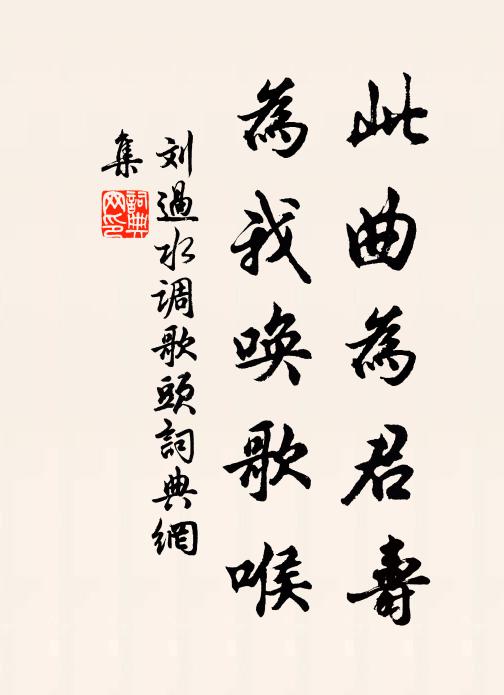 此曲為君壽
為我唤歌喉
刘過水调歌頭詞典網
集
詞典网印